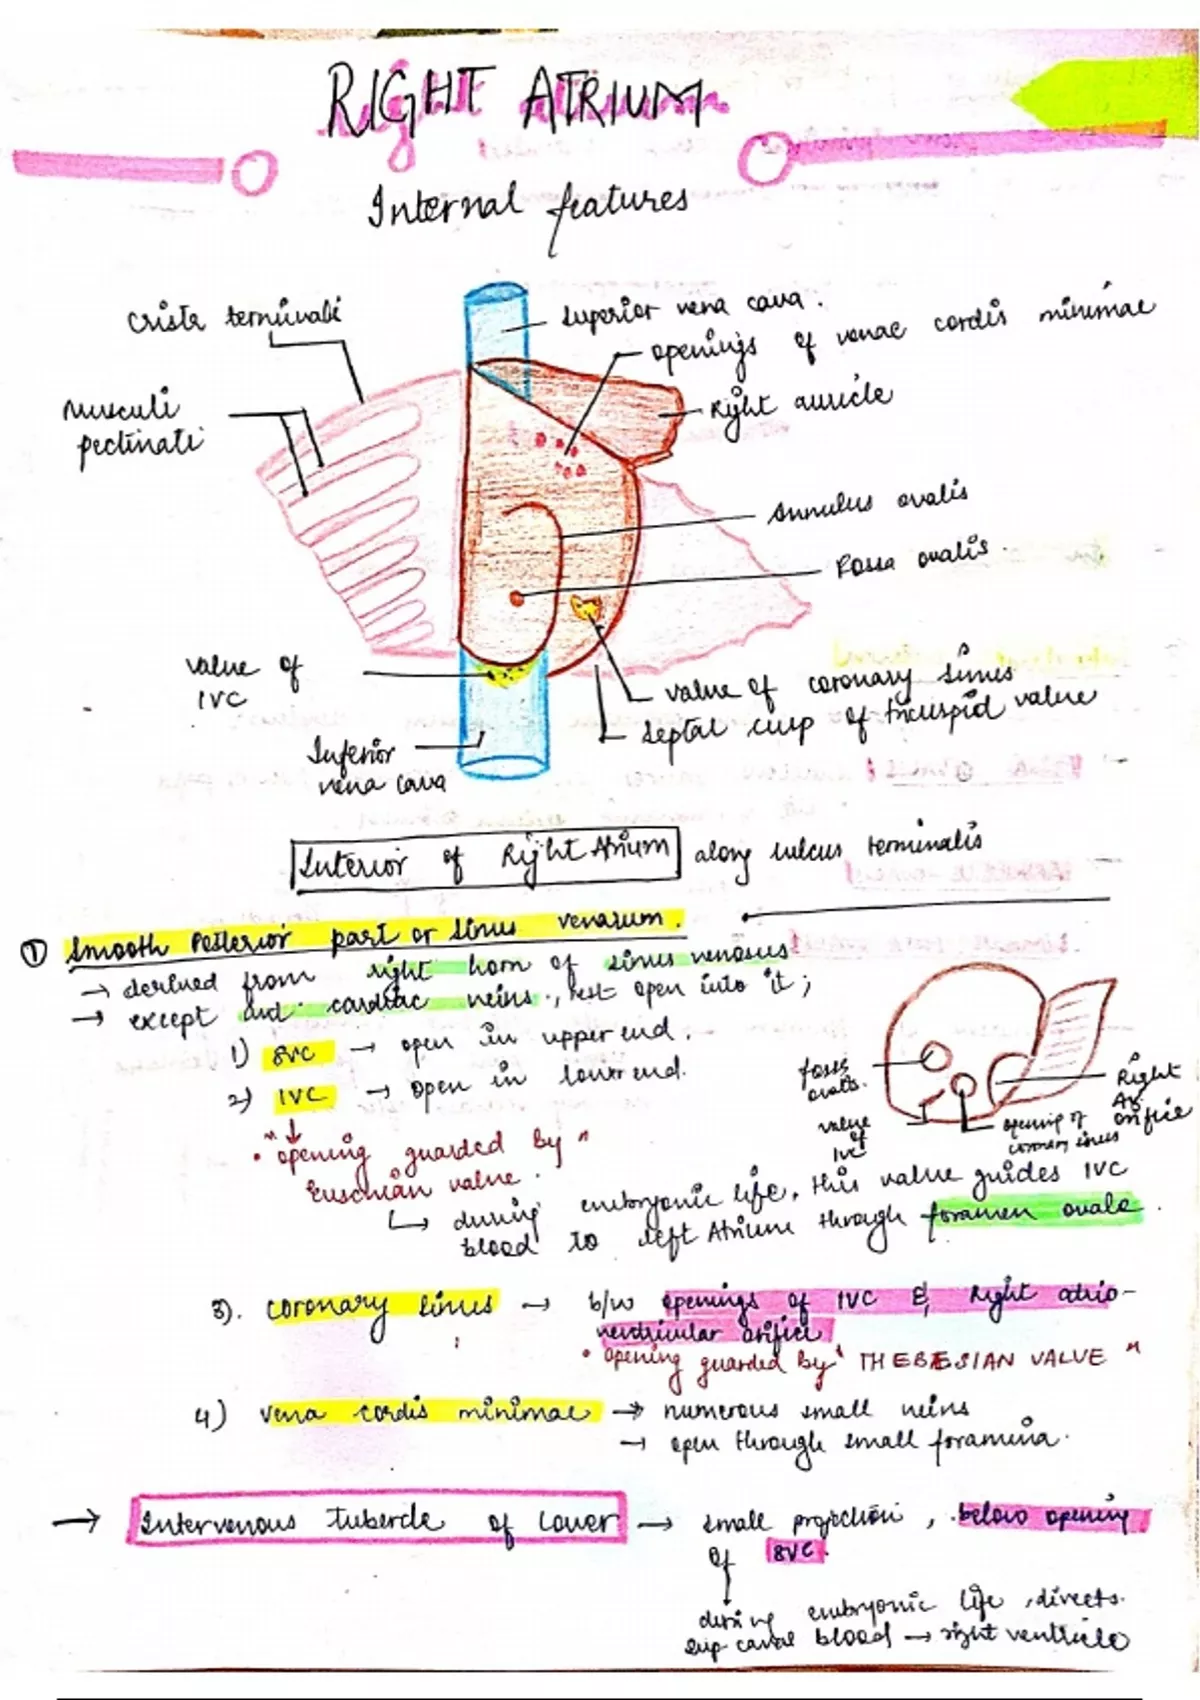 RIGHT ATRIUM
Internal features
Crista terminali
Superior vena cava.
openings of venae cordis minimae
Musculi
pectinati
Right auricle
Annulus ovalis
Fossa ovalis.
valve of
IVC
valve of coronary sinus
Septal cusp of tricuspid valve
Inferior
vena cava
Interior of Right Atrium along sulcus terminalis
① Smooth Posterior part or sinus venarum.
→ derived from right horn of sinus venosus
→ except ant cardiac veins, rest open into it;
1) SVC → open in upper end.
2) IVC → open in lower end.
" • opening guarded by "
Euschian valve.
↳ during embryonic life, this valve guides IVC
blood to left Atrium through foramen ovale.
fossa
ovalis.
valve
of
IVC
opening of
coronary sinus
Right
Av
orifice
3). coronary sinus → b/w openings of IVC & Right atrio-
ventricular orifice
• opening guarded by " THEBESIAN VALVE "
4) vena cordis minimae → numerous small veins
→ open through small foramina.
→ Intervenous tubercle of Lower → small projection, below opening
of SVC.
during embryonic life, directs.
sup caval blood → right ventricle